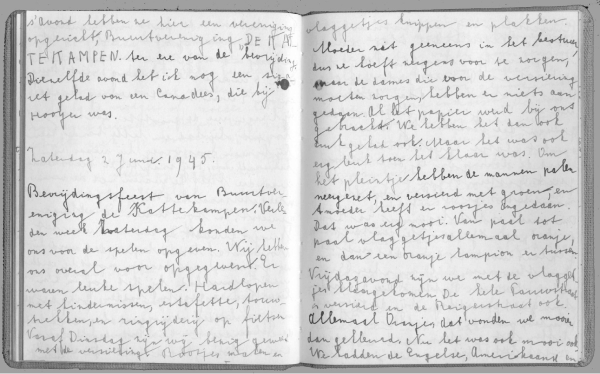 s'avond hebben ze hier een vereniging
opgericht, Buurtvereniging "DE KAT
TEKAMPEN". ter ere van de bevrijding
Diezelfde avond heb ik nog een siga
ret gehad van een Canadees, die bij
was.
Zaterdag 2 Juni 1945.
Bevrijdingsfeest van Buurtver
eniging de Kattekampen. Verle
den week Zaterdag konden we
ons voor de spelen opgeven. Wij hebben
ons overal voor opgegeven. Er
waren leuke spelen. Hardlopen
met hindernissen, estafette, touw
trekken, en ringrijderij op fietsen
Vanaf Dinsdag zijn wij bezig geweest
met de versiering. Roosjes maken en
vlaggetjes knippen en plakken.
Moeder zat geeneens in het bestuur,
dus ze hoeft nergens voor te zorgen,
maar de dames die voor de versiering
moeten zorgen, hebben er niets aan
gedaan. Al het papier werd bij ons
gebracht. We hebben het dan ook
druk gehad ook. Maar het was ook
erg leuk toen het klaar was. Om
het pleintje hebben de mannen palen
neergezet, en versierd met groen, en
moeder heeft er roosjes ingedaan.
Dat was erg mooi. Van paal tot
paal vlaggetjes allemaal oranje,
en dan een oranje lampion er tussen.
Vrijdagavond zijn we met de vlagget
jes klaargekomen. De hele
is versierd en de Reigerstraat ook.
Allemaal Oranjes dat vonden we mooier
dan gekleurds. Nu het was ook mooi ook
We hadden de Engelse, Amerikaanse en